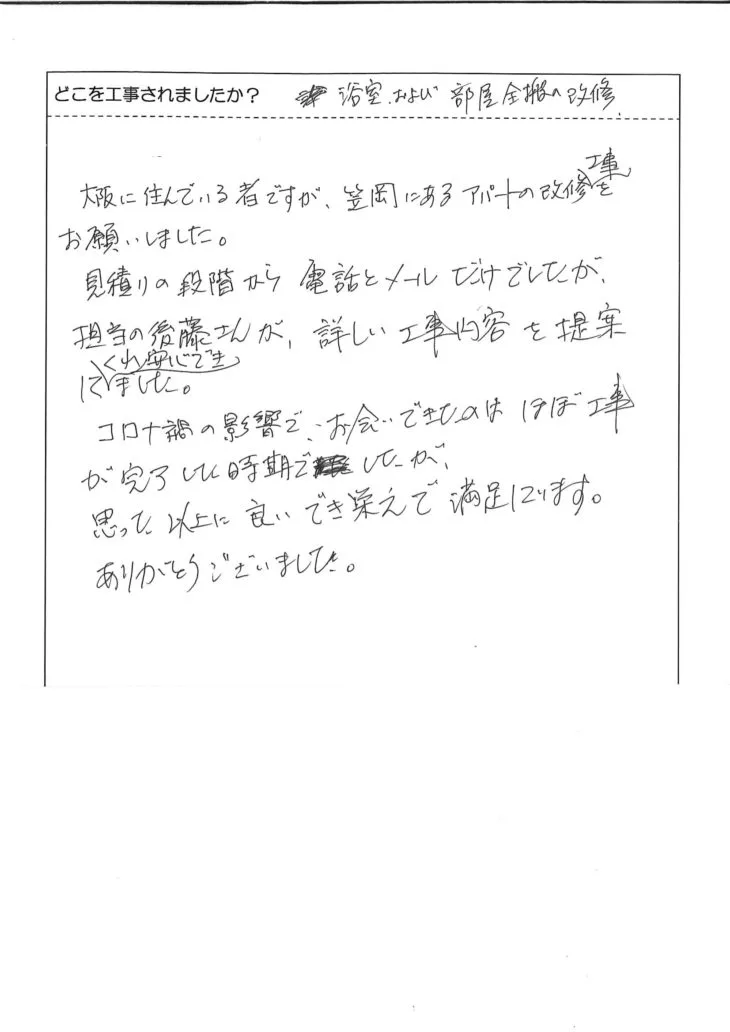 どこを工事されましたか? 浴室、および 部屋全搬の改修
大阪に住んでいる者ですが、笠岡にあるアパートの改修工事を
お願いしました。
見積りの段階から 電話とメールだけでしたが、
担当の後藤さんが、詳しい工事内容を提案
してくれ安心できました。
コロナ禍の影響で、お会いできたのは ほぼ工事
が完了した時期でしたが、
思った以上に良いでき栄えで 満足しています。
ありがとうございました。